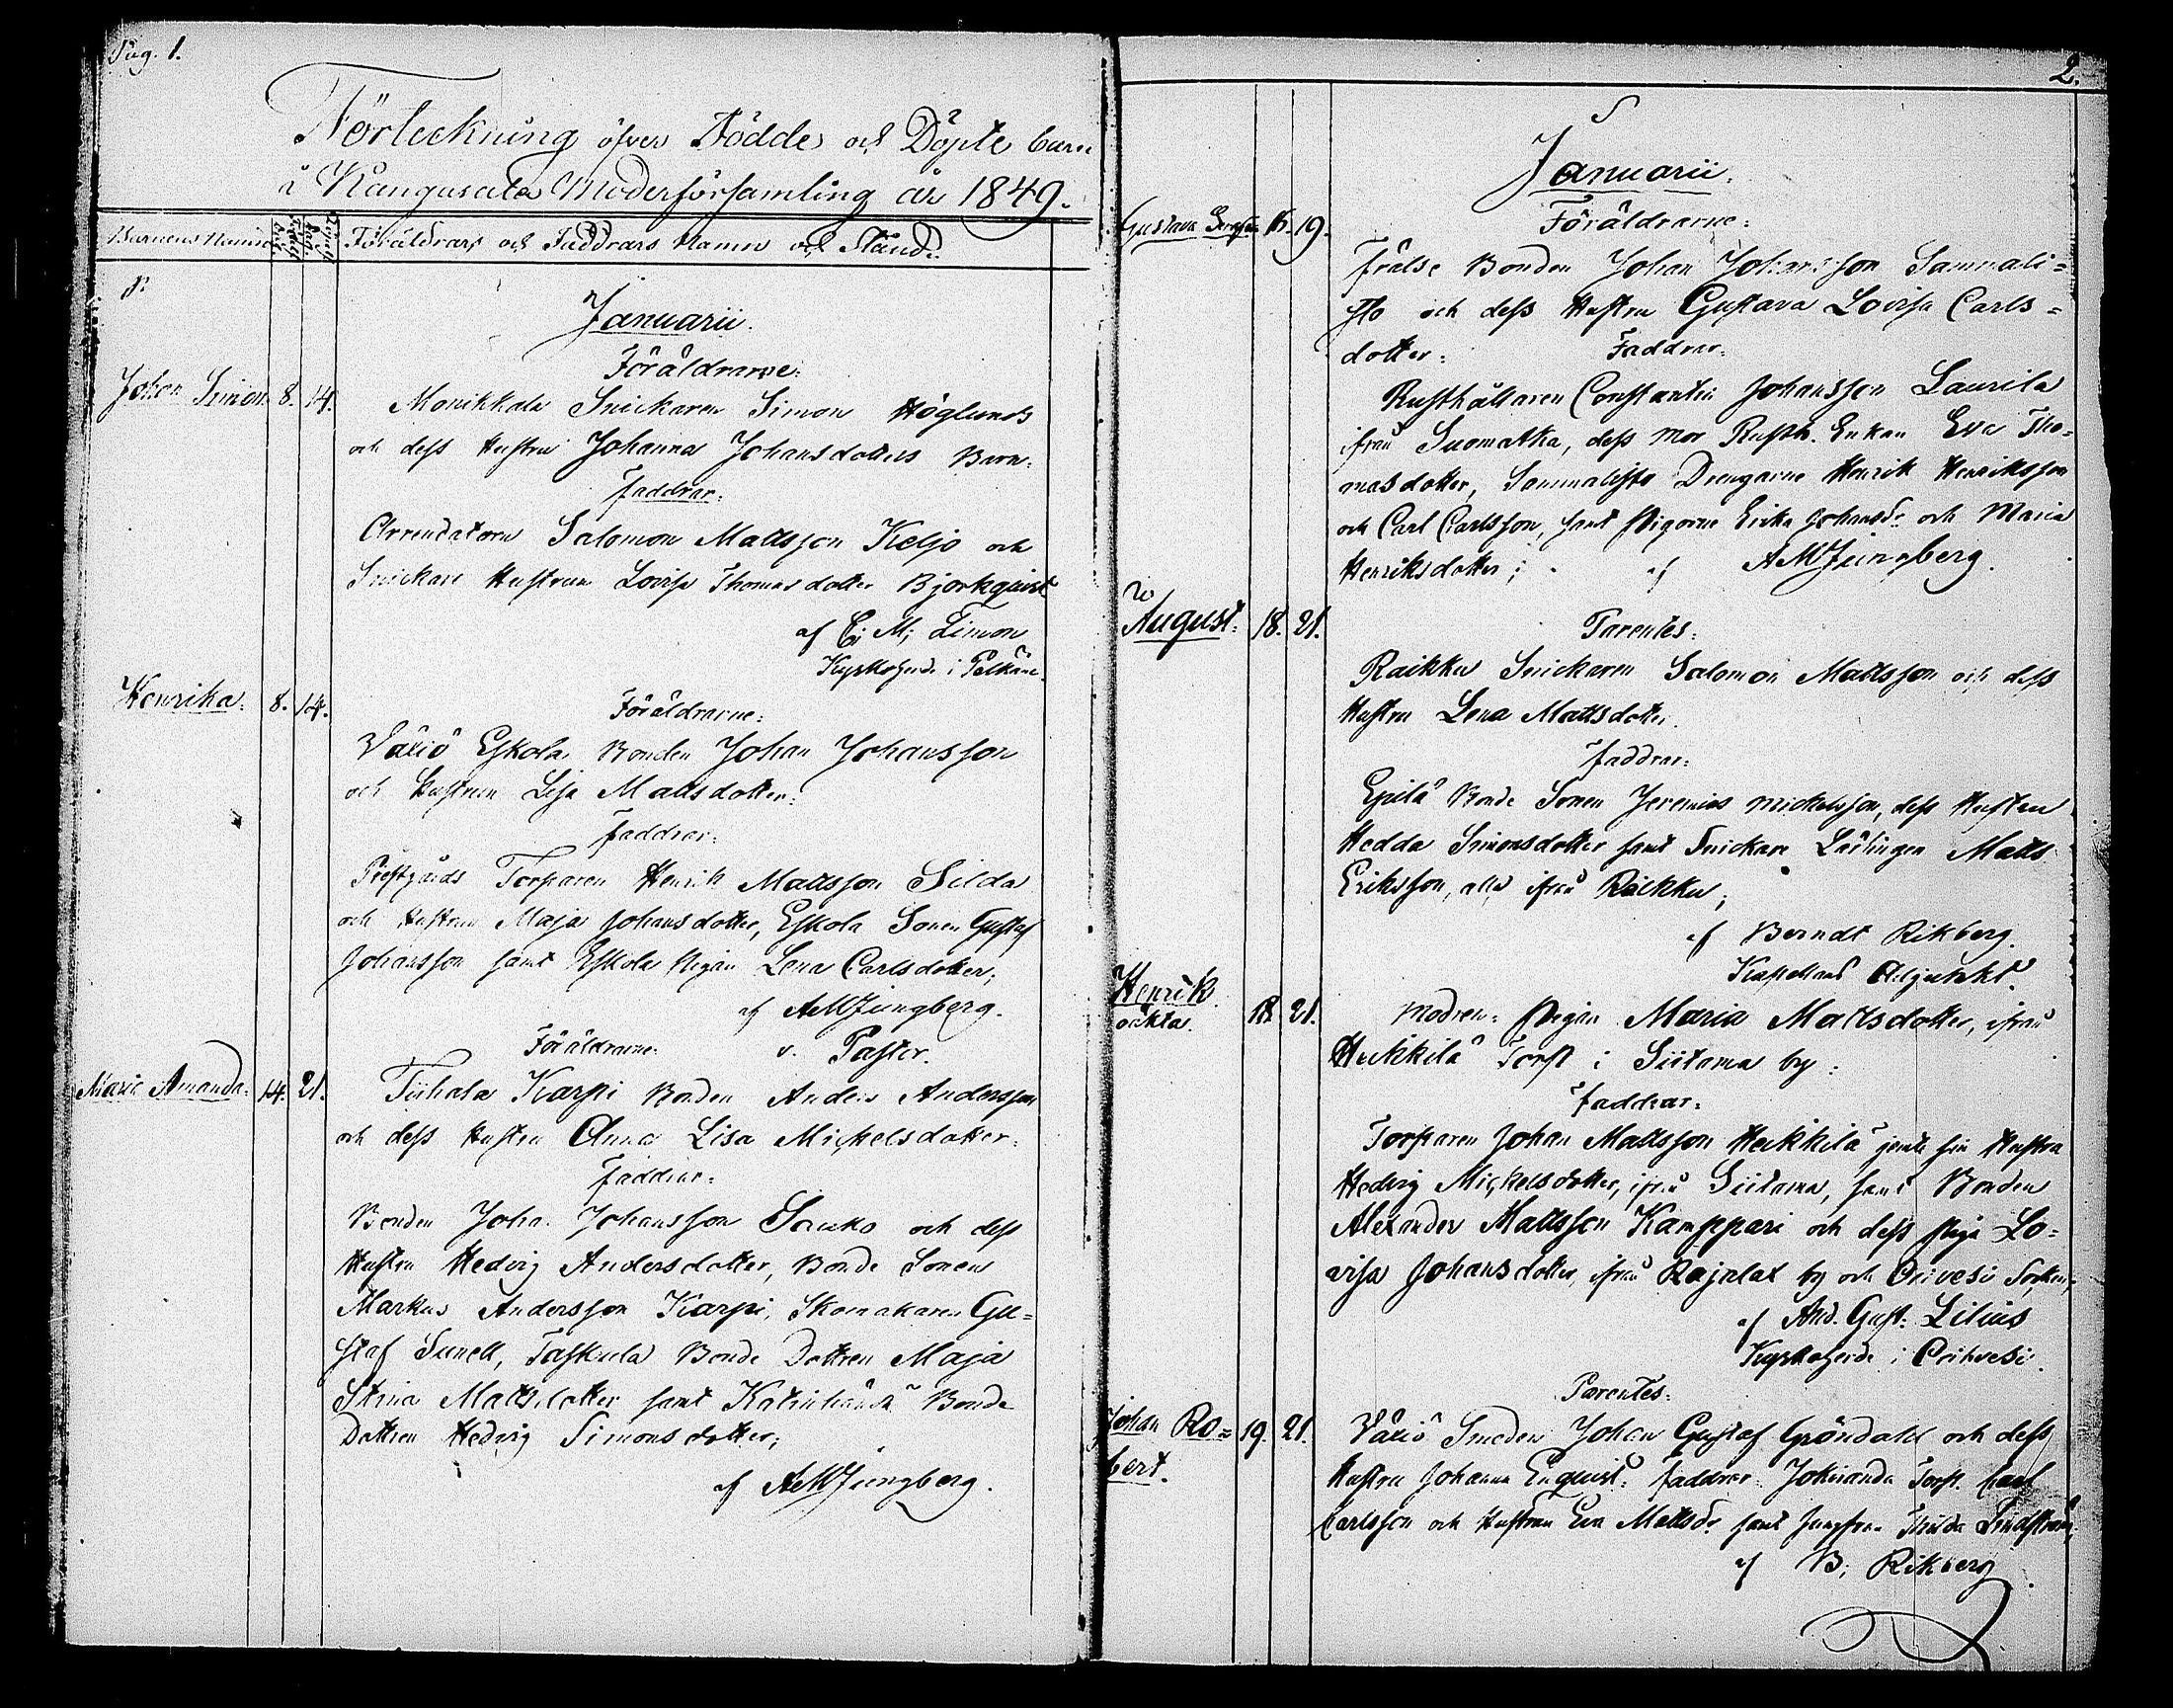 Pag. 1.
Förteckning öfver Födde och Döpte barn
i Kangasala Moderförsamling år 1849.
Barnens Namn Föräldrars och Faddrars Namn och Stånd.
Januarii.
Föräldrarne:
Johan Simon. 8. 14. Monikkala Snickaren Simon Höglunds
och dess Hustru Johanna Johansdotters Barn:
faddrar:
Arrendatorn Salomon Mattsson Keljo och
Snickare Hustrun Lovisa Thomasdotter Björkqvist
af C; M; Limon
Kyrkoherde i Pelkäne.
Henrika: 8. 14. Föräldrarne:
Växiö Eskola Bonden Johan Johansson
och Hustrun Lisa Mattsdotter:
faddrar:
Prestgårds Torparen Henrik Mattsson Silda
och Hustrun Maja Johansdotter, Eskola Sonen Gustaf
Johansson samt Eskola Pigan Lena Carlsdotter;
af AWLjungberg.
Föräldrarne: v. Pastor.
Maria Amanda: 14. 21. Tiihala Karpi Bonden Anders Andersson
och dess Hustru Anna Lisa Michelsdotter:
faddrar:
Bonden Johan Johansson Sauko och dess
Hustru Hedvig Andersdotter, Bonde Sonen
Markus Andersson Karpi, Skomakaren Gu=
staf Sunell, Taskula Bonde Dottren Maja
Stina Mattsdotter samt Bonde
Dottren Hedvig Simonsdotter;
af AWLjungberg.
2.
Januarii.
Föräldrarne:
Gustava 16. 19.
Frälse Bonden Johan Johansson Sammali=
sto och dess Hustru Gustava Lovisa Carls=
dotter: Faddrar:
Rusthållaren Constantin Johansson Laurila
ifrån Suomatka, dess Mor Rusth. Enkan Eva Tho=
masdotter, Sammalisto Drengarne Henrik Henriksson
och Carl Carlsson, samt Pigorne Erika Johansd:r och Maria
Henriksdotter; af AWLjungberg.
August: 18. 21. Parentes:
Raikku Snickaren Salomon Mattsson och dess
Hustru Lena Mattsdotter.
faddrar:
Epilä Bonde Sonen Jeremias Mickelsson, dess Hustru
Hedda Simonsdotter samt Snickare Lärlingen Matts
Eriksson, alla ifrån Raikku;
af Berndt Rikberg.
Kapellans Adjunkt.
Henrik
oäkta. 18. 21. Modren: Pigan Maria Mattsdotter, ifrån
Heikkilä Torp i Siitama by:
faddrar:
Torparen Johan Mattsson Heikkilä jemte sin Hustru
Hedvig Michelsdotter, ifrån Siitama, samt Bonden
Alexander Mattsson Kamppari och dess piga Lo=
visa Johansdotter, ifrån by och Orivesi Socken;
af And. Gust: Lilius
Kyrkoherde i Orihvesi.
Parentes:
Johan Ro=
bert. 19. 21. Växiö Smeden Johan Gustaf Gröndahl och dess
Hustru Johanna Enqvist: faddrar: Jokioranda Torp. Carl
Carlsson och Hustrun Eva Mattsd:r samt Jungfru Thilda Lindström;
af B; Rikberg.